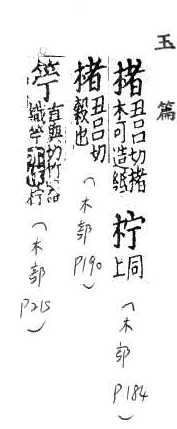 玉篇
楮
丑呂切楮
木可造紙
柠
同上
(木部
P184)
楮
丑呂切
穀也
(木部
P190)
直與切竹
(木部
P215)